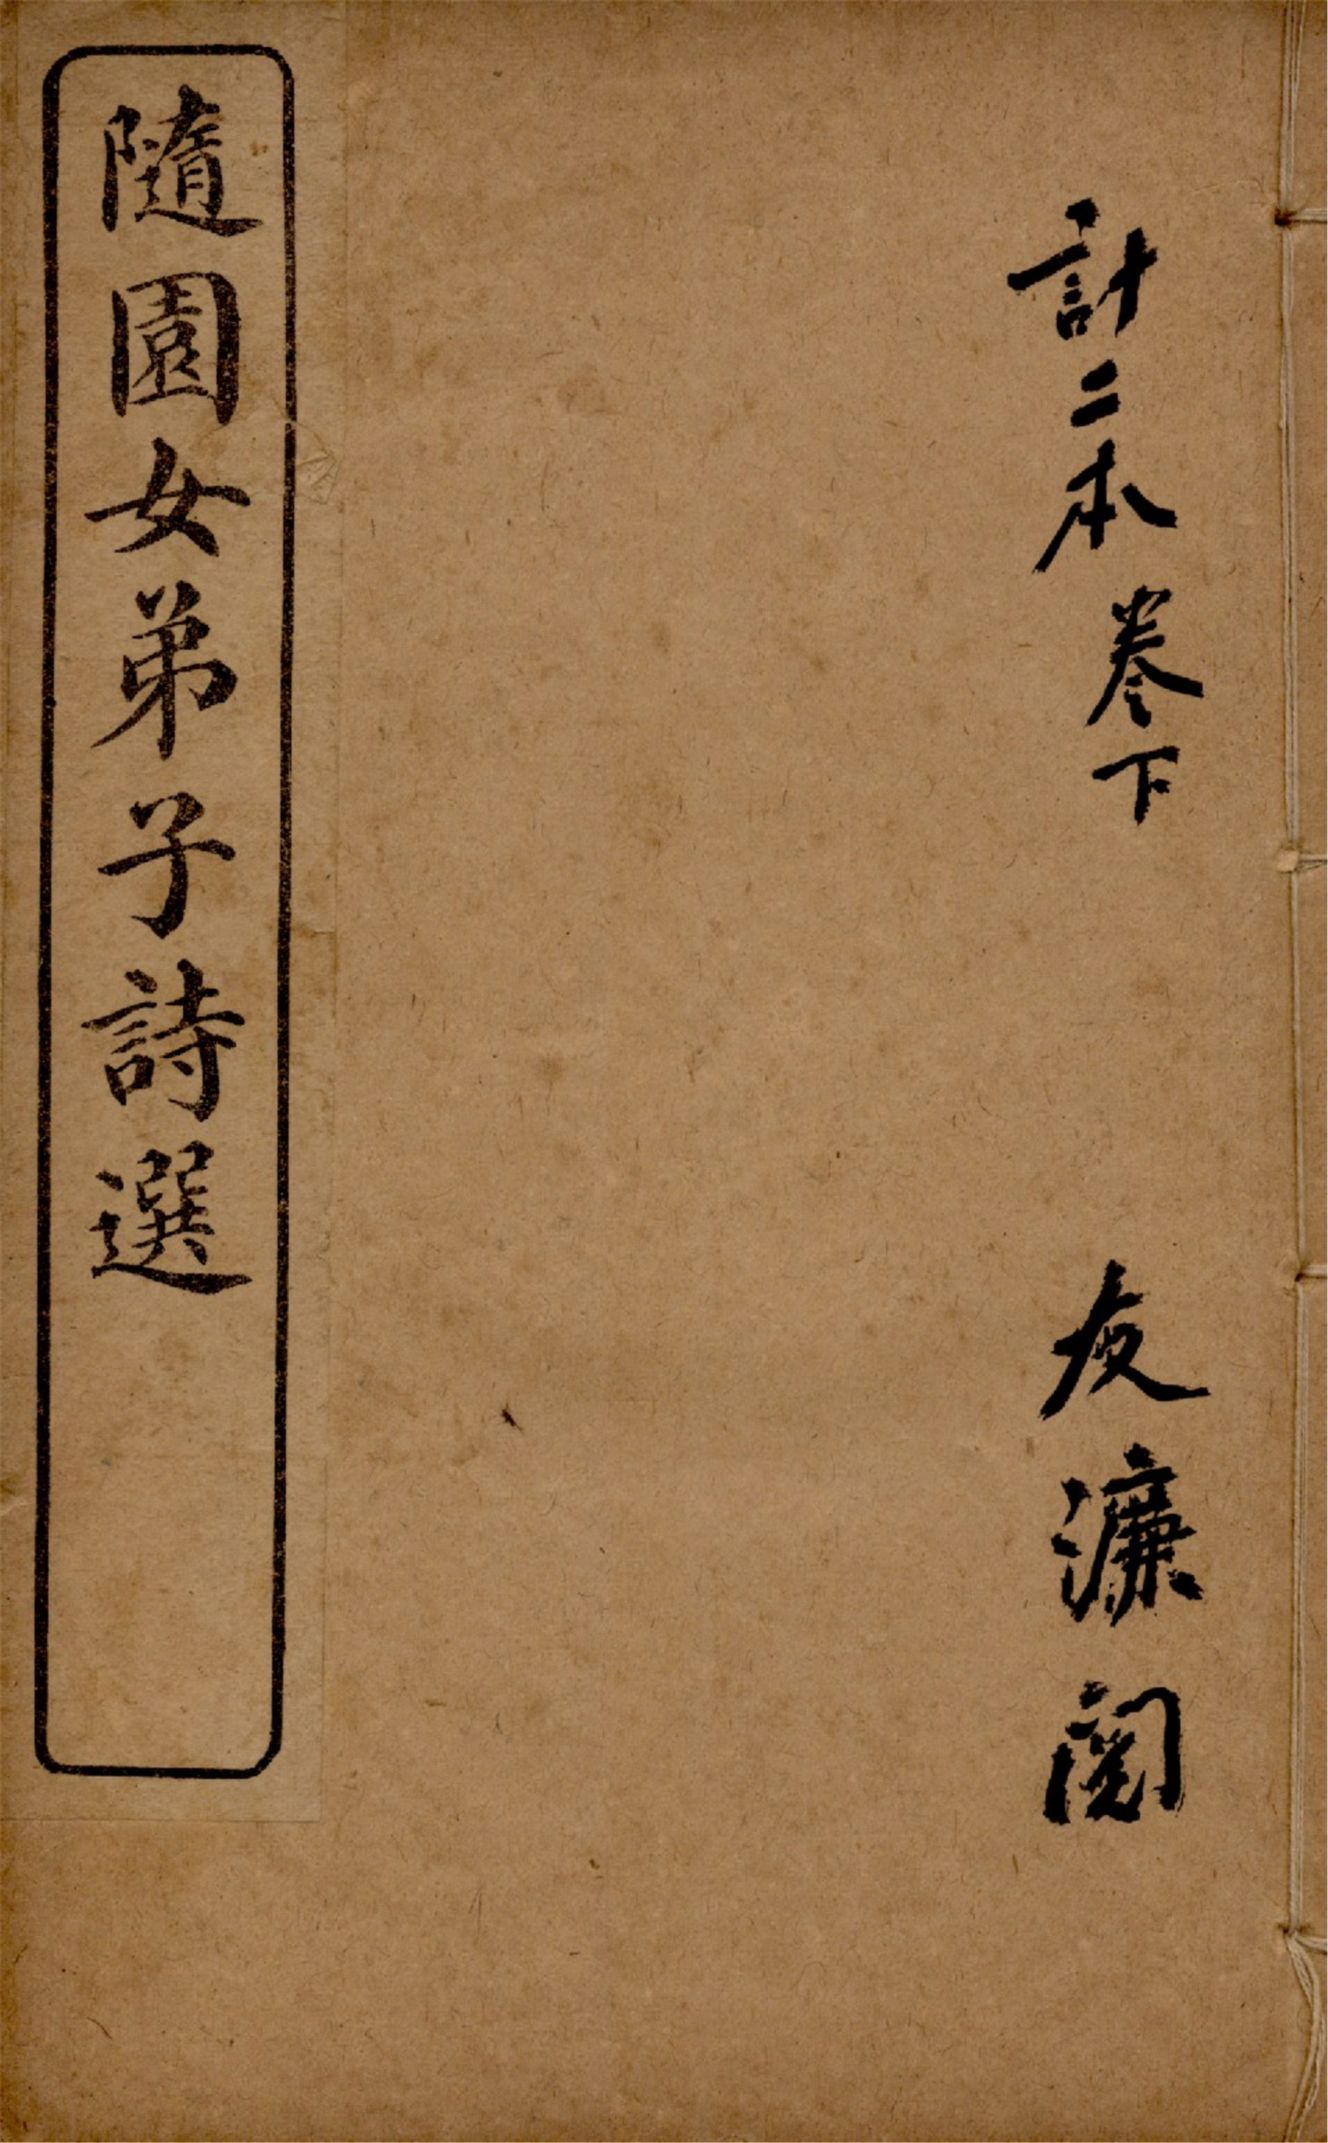 計二本卷下
友濂閱
隨園女弟子詩選